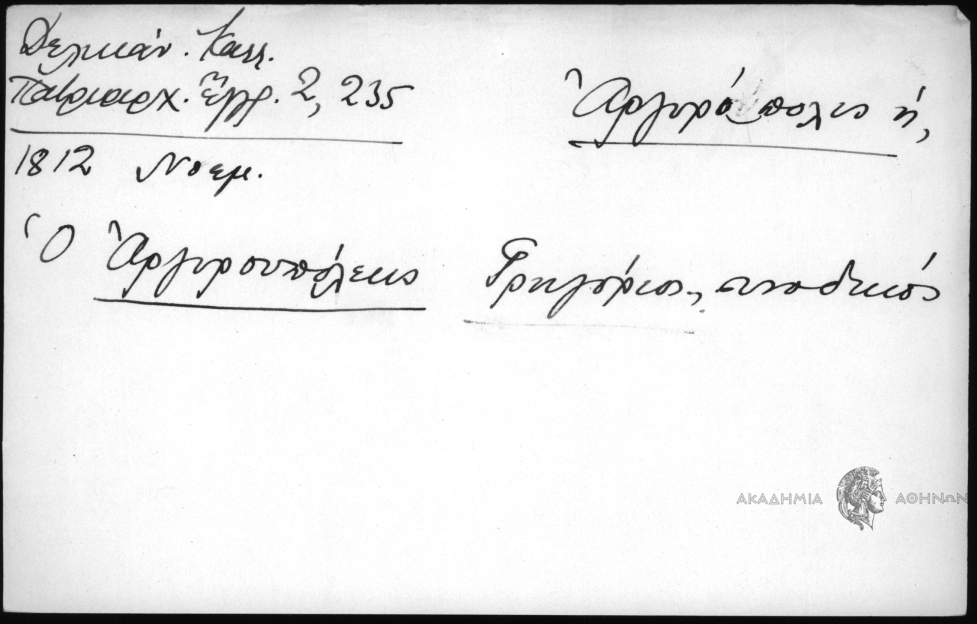 Δελικάν. Καλλ.
Πατριαρχ. Ἔγγρ. 2, 235
Ἀργυρόπολις ἡ,
1812 Νοεμ.
Ὁ Ἀργυρουπόλεως Γρηγόριος, συνοδικός
ΑΚΑΔΗΜΙΑ ΑΘΗΝΩΝ